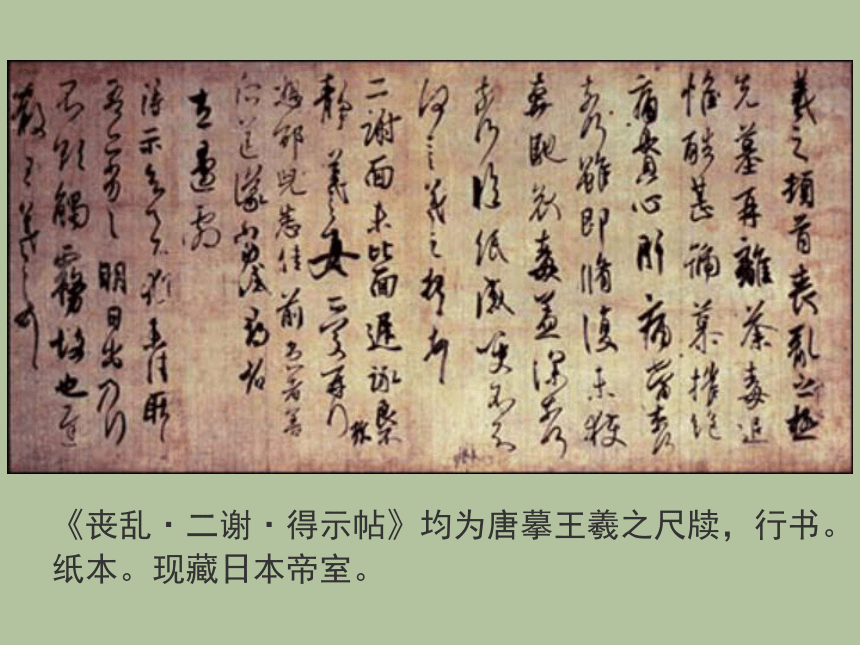 羲之頓首喪亂之極
先墓再離荼毒追
惟酷甚號慕摧絕
痛貫心肝痛當奈何
奈何雖即脩復未獲
奔馳哀毒益深奈何
奈何臨紙感哽不知
何言羲之頓首頓首
二謝面未比面遲詠良不
靜羲之女愛再拜
想邰兒悉佳前患者善
所送議當試尋省
左邊劇
得示知足下猶未佳耿耿
吾亦劣劣明日出乃行
不欲觸霧故也遲
散王羲之頓首
《丧乱·二谢·得示帖》均为唐摹王羲之尺牍，行书。
纸本。现藏日本帝室。